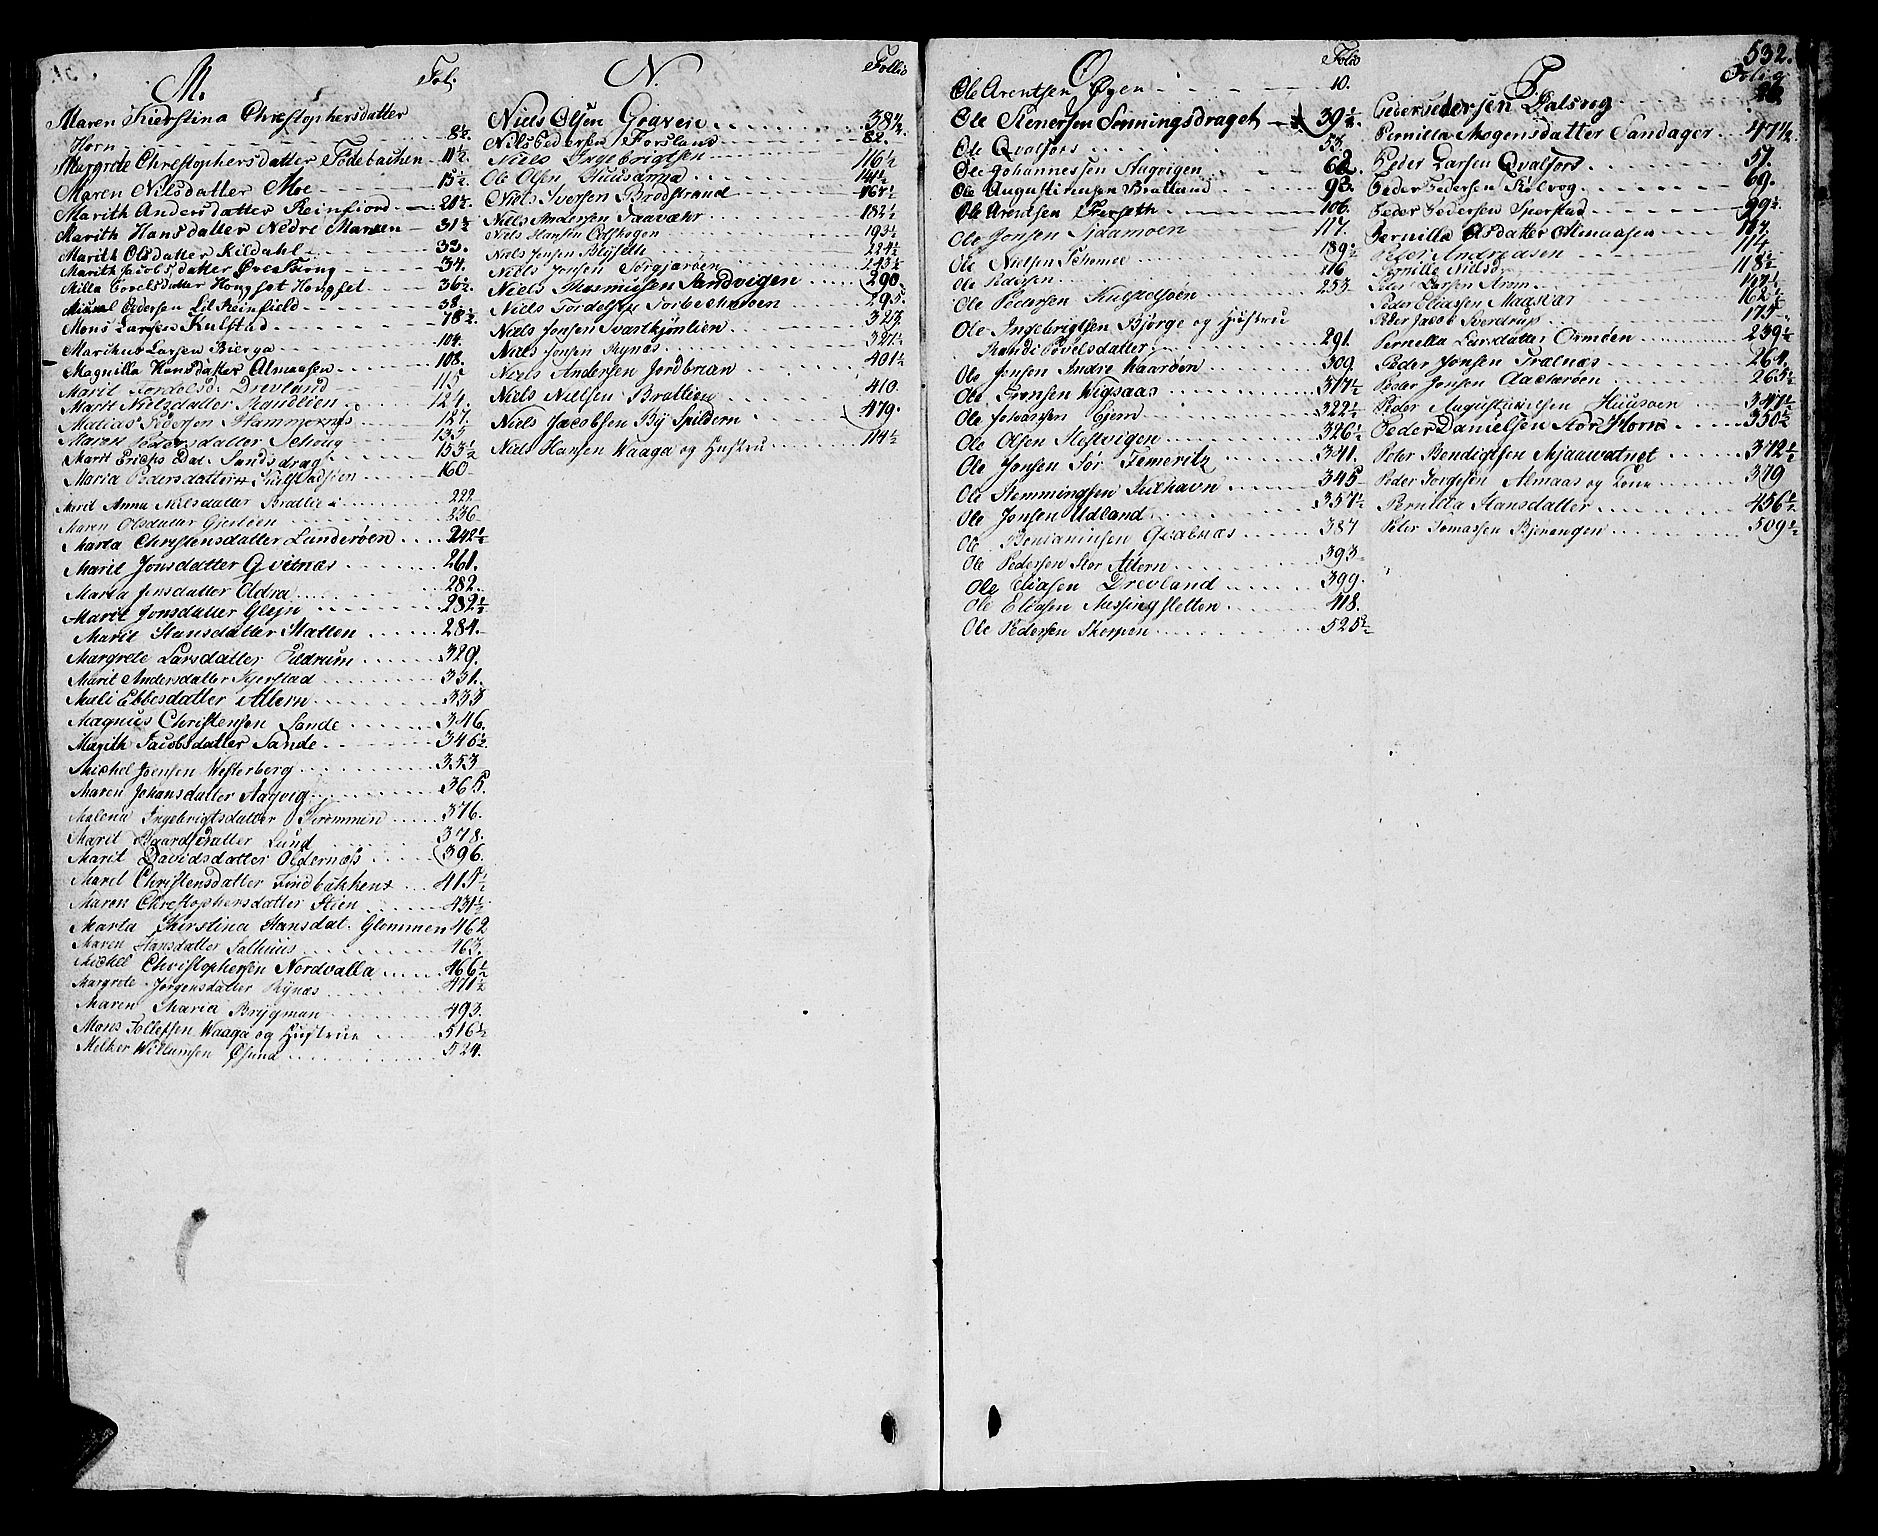 M. Fol.
Maren Kierstina Christophersdatter
Horn 8½
Margrete Christophersdatter Födebachen 11½
Maren Nilsdatter Moe 15½
Marith Andersdatter Reinfiord 21½
Marith Hansdatter Nedre Marken 31½
Marith Olsdatter Kildahl 33.
Marith Jacobsdatter 34.
Milla Povelsdatter 36½
Michael Pedersen Lil Reinfield 38.
Mons Larsen Kulstad 78½
Marikus Larsen Bierga 104.
Magnilla Hansdatter Almaasen 108.
Marit Tordelsd: Drevland 115
Marit Nielsdatter Randlien 124.
Matias Pedersen Hammernæs 127.
Maren Pedersdatter Selvug 133
Marit Erichs Dat. Sandsdrag 153½
Maria Pedersdatter 160
Marit Anna Nilsdatter Bratlie 222
Maren Olsdatter Gjerlien 236
Marta Christensdatter Lunderöen 248½
Marit Jonsdatter Qvitnæs 261.
Marta Jensdatter Oldra 282.
Marit Jonsdatter Glejn 282½
Marit Hansdatter Matten 284.
Margrete Larsdatter Eldrum 329.
Marit Andersdatter Sjerstad 331.
Mali Ebbesdatter Altern 333
Magnus Christensen Sande 346.
Magith Jacobsdatter Sande 346½
Michel Joensen Vesterberg 353
Maren Johansdatter Aagvig 365.
Malena Ingebrigtsdatter Strømmen 376.
Marit Baardsdatter Lund 378.
Marit Davidsdatter Oldernæs 396.
Marit Christensdatter Findbakken 415½
Maren Christophersdatter Stien 431½
Marta Kirstina Hansdat. Glommen 462
Maren Hansdatter Salhuus 463.
Michel Christophersen Nordvalla 466½
Margrete Jørgensdatter Rynæs 471½
Maren Maria Brygman 493.
Mons Tollefsen Waaga og Hustrue 516½
Melker Willumsen Øsund 524.
N. Follio
Niels Olsen Graven 38½
Nils Pedersen Forsland 82.
Niels Ingebrigtsen 116½
Ole Olsen Huusarna 144½
Niels Iversen Brodstrand 167½
Niels Andersen Traavæhr 182½
Niels Hansen 193½
Niels Jensen 224½
Niels Jonsen Torgjerøen 243½
Niels Thosmusen Sandvigen 290.
Niels Tordelsen Torbechmoen 295.
Niels Jonsen Svartkjønlien 323
Niels Jonsen Rynæs 327½
Niels Andersen Jordbruan 401½
Niels Nielsen Bratlien 410.
Niels Jacobsen By Spildern 479.
Niels Hansen Waaga og Hustru 114½
O Folio
Ole Arentsen Øyen 10.
Ole Steners​en Sonningsdraget 39½
Ole Qvalfors 53.
Ole Johannessen Stagvigen 62
Ole Augustinusen Bratland 93.
Ole Arentsen Furseth 106.
Ole Jonsen Sjdamoen 117.
Ole Nielsen 139½
Ole Pedersen 116
Ole Pedersen 253
Ole Ingebrigtsen Bjørge og Hustru
Randi Povelsdatter 291.
Ole Jonsen Indre Haarøen 309.
Ole Tronsen Vigsaas 317½
Ole Joharsen Tjern 322½
Ole Olsen Hestvigen 326½
Ole Jonsen Sør Femeritz 341.
Ole Flemmingsen Suxhavn 345
Ole Jonsen Udland 357½
Ole Beniaminsen Qvalnæs 387
Ole Pedersen Stor Altern 393
Ole Eliasen Drevland 399.
Ole Eliasen Messingsletten 418.
Ole Pedersen Skorpen 525½
532.
P. Folio
Peder Pedersen Dalsvog 26
Pernilla Mogensdatter Sandager 47½
Peder Larsen Qvalfors 57.
Peder Pedersen Kilvog 69.
Peder Pedersen Sperstad 99½
Pernilla Olsdatter Almaasen 104.
Peder Andreasen 114
Pernille Nielsd. 118½
Peter Larsen Strøm 142½
Peder Eliasen Maaskar 162½
Peder Jacob Sverdrup 175
Pernella Larsdatter Ormøen 239½
Peder Jonsen Trælnæs 264
Peder Jonsen Aackerøen 265½
Peder Augustinusen Huusøen 347½
Peder Danielsen Stor Horne 350½
Peter Bendigtsen Mjaavatnet 372½
Peder Jørgesen Almaas og Kone 379
Pernilla Hansdatter 456½
Peter Tomassen Bjerangen 509½